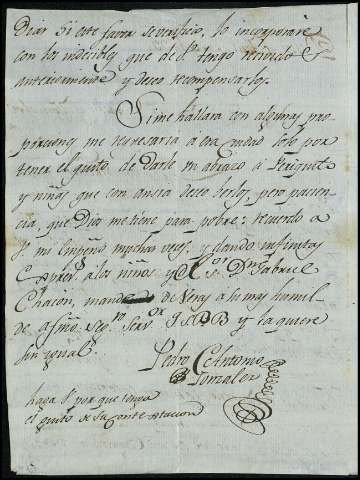 Dias si este favor se verifica, lo incorporaré
con los indecibles que de V. tengo recivido
anteriormente y deseo recompensarlos.
Si me hallara con algunas pro
porciones me regresaria a esa solo por
tener el gusto de darle un abrazo a Periquit
y niñas que con ansia deseo berlos, pero pacien
cia, que Dios me tiene para pobre: recuerdo a
V. mi empeño muchas veces, y dando infinitas
a los niños y a Dn. Gabriel
Chacon, mande de Veras a su muy humil-
de afmo. Segn. Servor. Q S M B y la quiere
sin igual.
Pedro Antonio
Gonzalez
haga V. por que tenga
el gusto de su contestacion